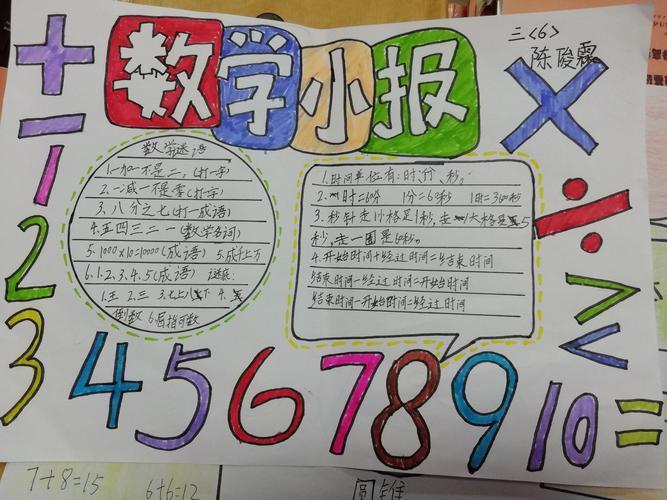 数学小报
三<6>
陈俊霖
数学迷语
1.一加一不是二,(打一字)
2.一减一不是零(打一字)
3、八分之七(打一成语)
4.五四三二一(数学名词)
5.1000×10=10000(成语) 5.成千上万
6.1.2、3.4.5(成语) 谜底:
1.王 2.三 3.七上八下 4.
倒数 6.屈指可数
1.时间单位有:时、分、秒。
2.一时=60分 1分=60秒 1时=3600秒
3.秒针走1小格是1秒,走一大格是5
秒,走一圈是60秒。
4.开始时间+经过时间=结束时间
结束时间-经过时间=开始时间
结束时间-开始时间=经过时间
+
-
×
÷
>
<
=
1
2
3 4 5 6 7 8 9 10
7+8=15 6+6=12 圆锥